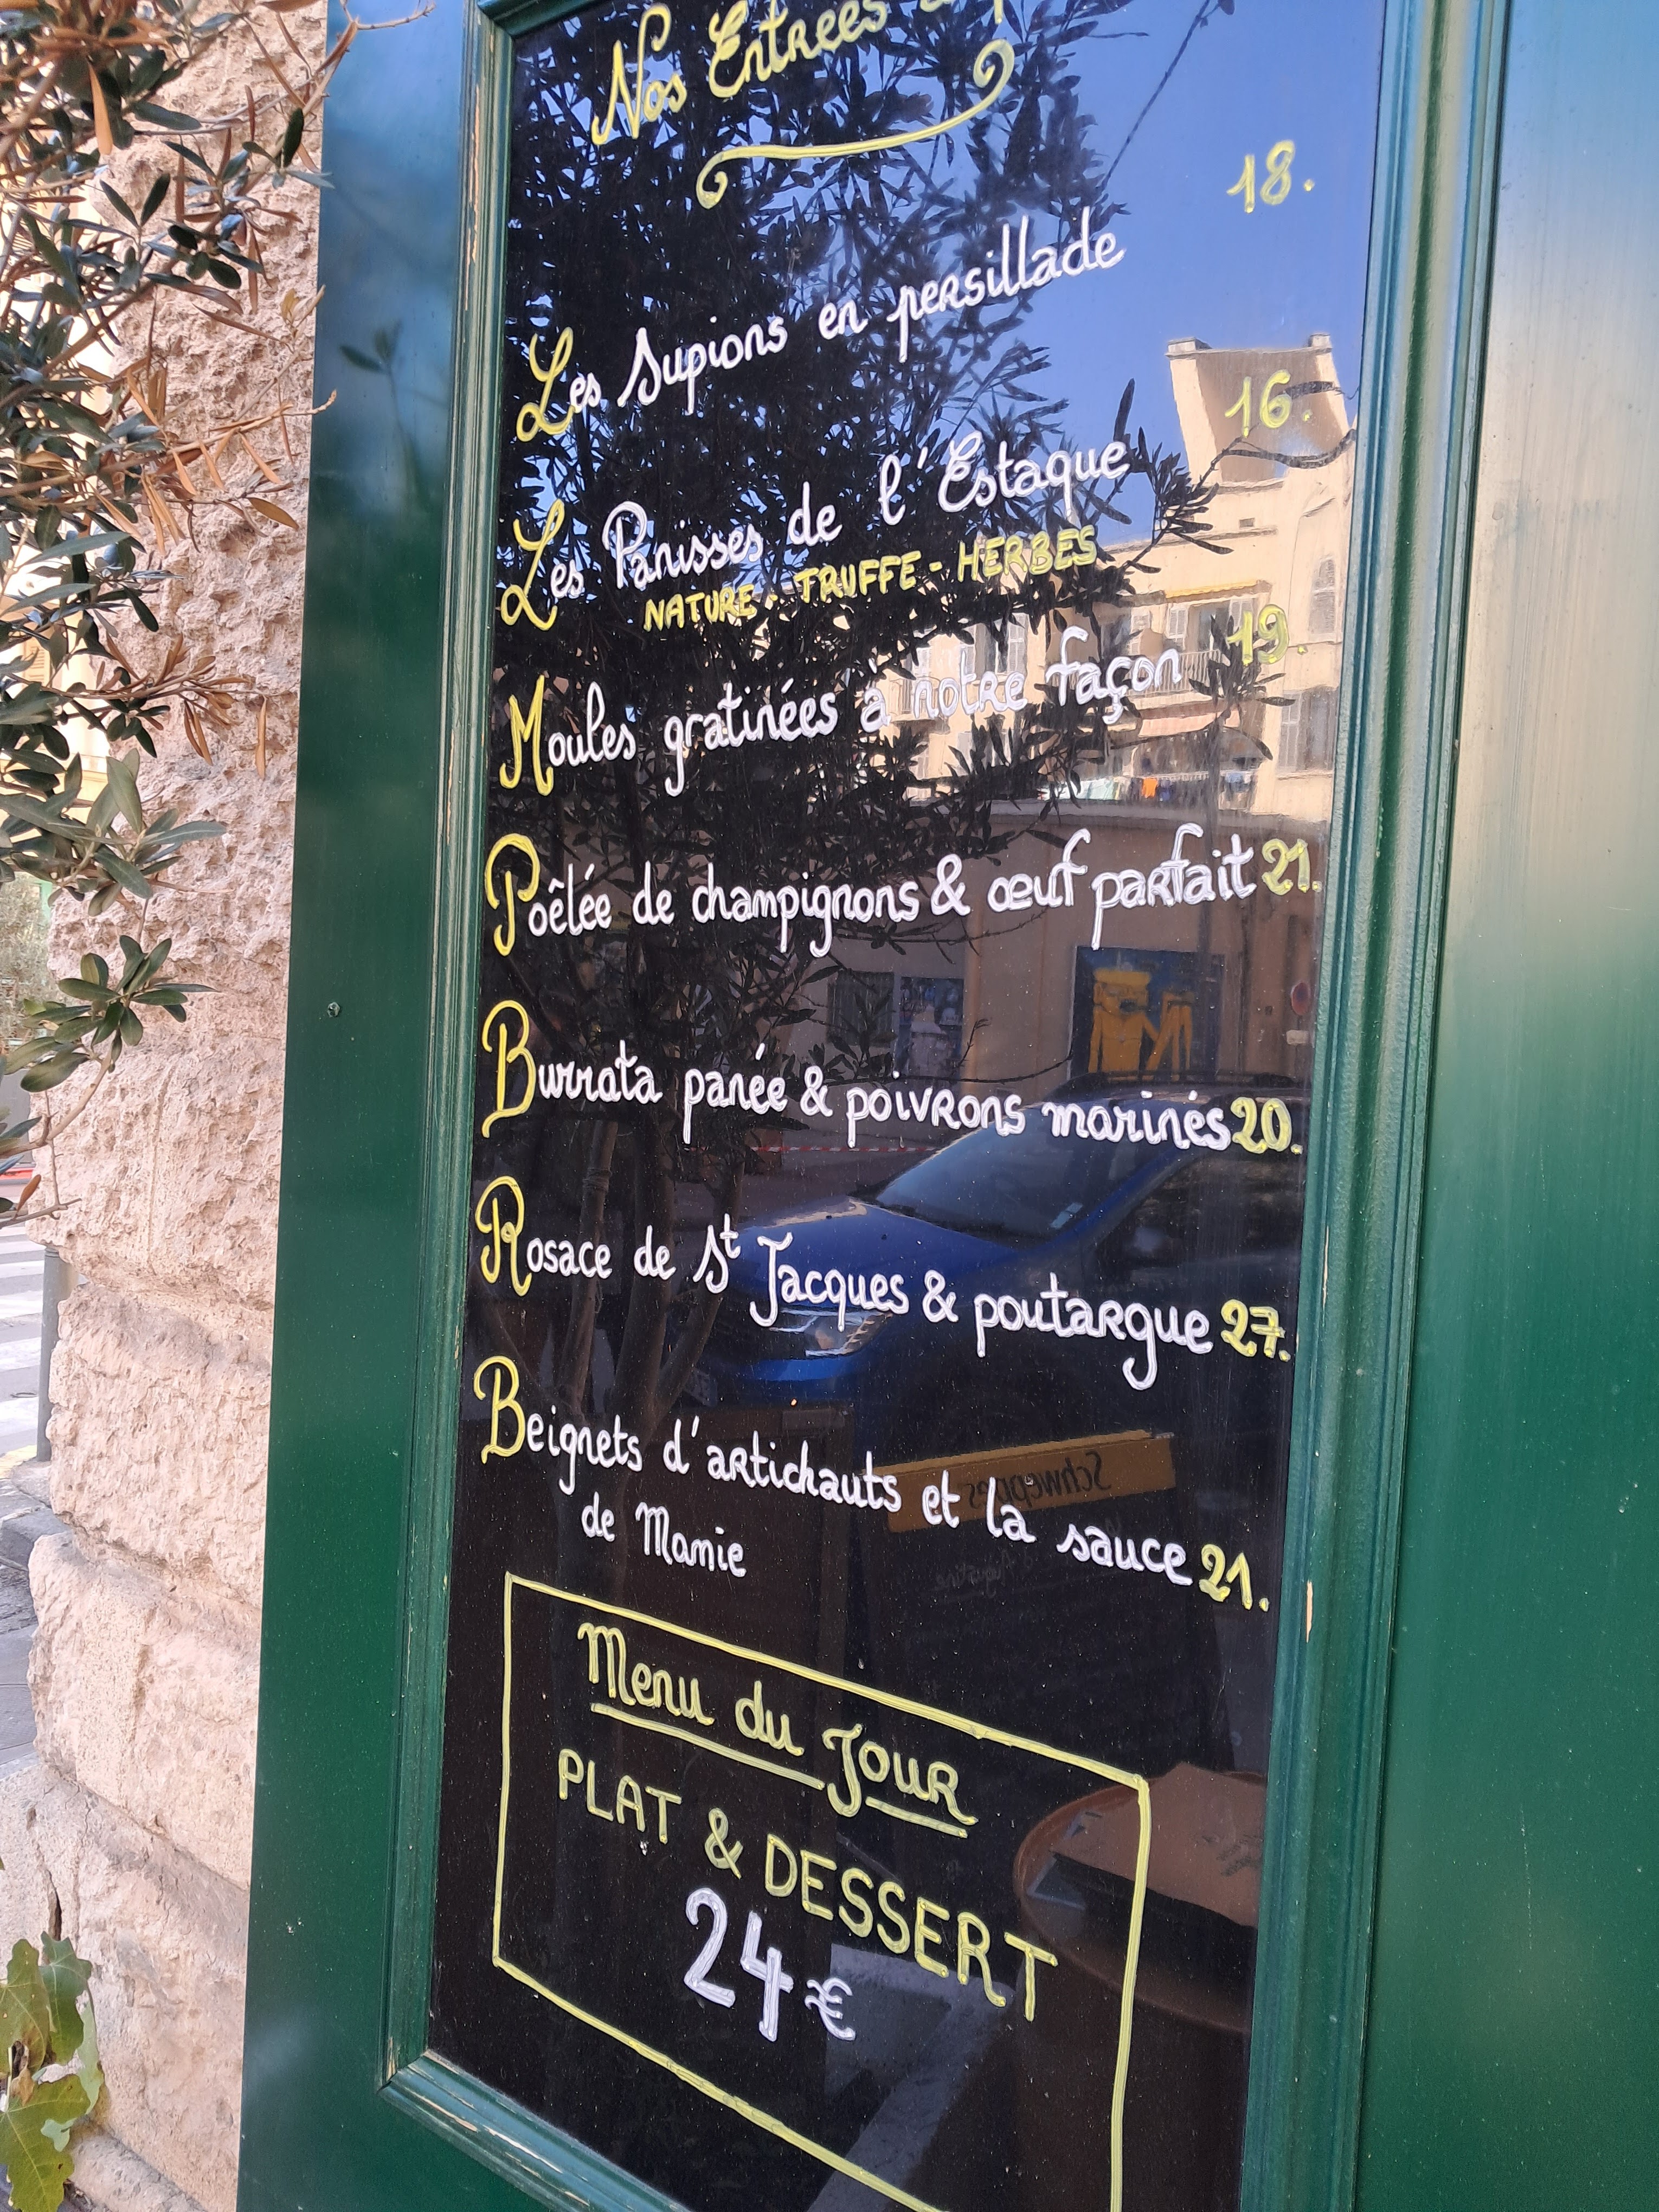 Nos Entrées
18.
Les Supions en persillade
16.
Les Panisses de l'Estaque
NATURE - TRUFFE - HERBES
19.
Moules gratinées a notre façon
Poêlée de champignons & œuf parfait 21.
Burrata panée & poivrons marinés 20.
Rosace de St Jacques & poutargue 27.
Beignets d'artichauts et la sauce 21.
de Mamie
Schweppes
Menu du Jour
PLAT & DESSERT
24€